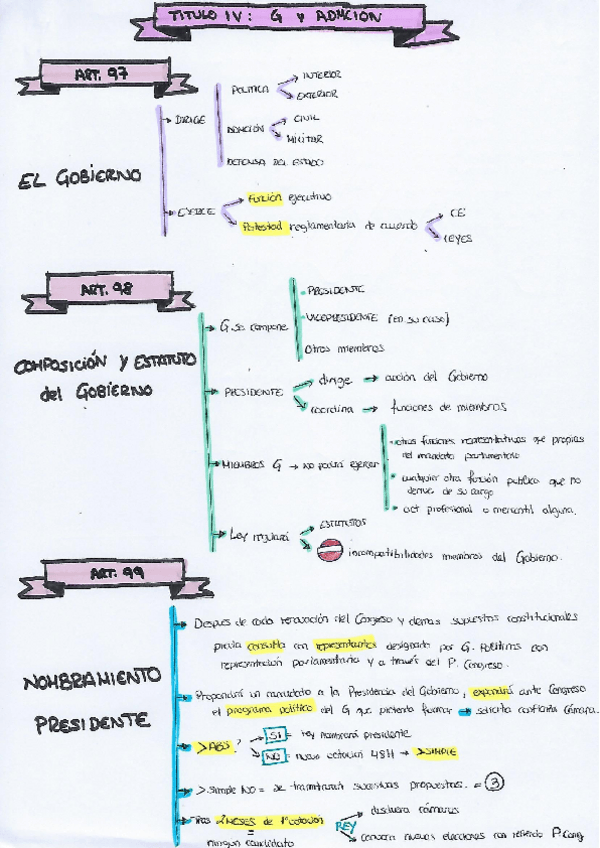 TITULO IV: G y ADMCIÓN
ART. 97
EL GOBIERNO
DIRIGE
POLITICA
INTERIOR
EXTERIOR
ADMCIÓN
CIVIL
MILITAR
DEFENSA DEL ESTADO
EJERCE
Función ejecutiva
Potestad reglamentaria de acuerdo
CE
LEYES
ART. 98
COMPOSICIÓN Y ESTATUTO
del GOBIERNO
G. se compone
PRESIDENTE
VICEPRESIDENTE (en su caso)
Otros miembros
PRESIDENTE
dirige → acción del Gobierno
coordina → funciones de miembros
MIEMBROS G → no podrá ejercer
otras funciones representativas que propias
del mandato parlamentario
cualquier otra función publica que no
derive de su cargo
act profesional o mercantil alguna.
Ley regulará
ESTATUTOS
incompatibilidades miembros del Gobierno.
ART. 99
NOMBRAMIENTO
PRESIDENTE
Despues de cada renovación del Congreso y demas supuestos constitucionales
previa consulta con representantes designado por G. Politicos con
representación parlamentaria y a través del P. Congreso.
Propondrá un candidato a la Presidencia del Gobierno, expondrá ante Congreso
el programa político del G que pretenda formar → solicita confianza Cámara.
>ABS
SI = rey nombrará presidente
NO = nueva votación 48H → >SIMPLE
>Simple NO = se tramitarán sucesivas propuestas. = 3
Tras 2 MESES de 1ª votación
=
ningun candidato
REY
disolverá cámaras
convoca nuevas elecciones con refrendo P. Cong